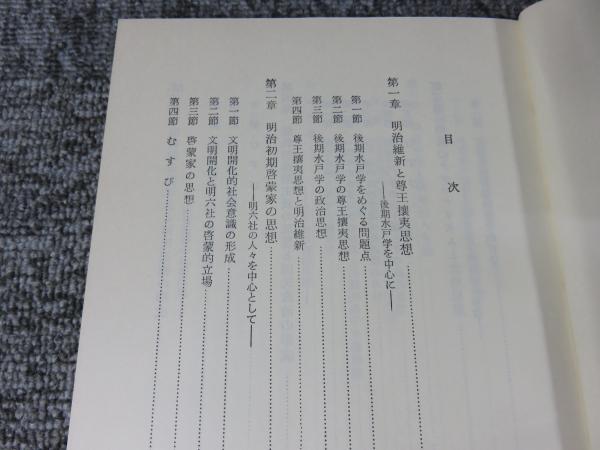 目次
第一章 明治維新と尊王攘夷思想
――後期水戸学を中心に――
第一節 後期水戸学をめぐる問題点
第二節 後期水戸学の尊王攘夷思想
第三節 後期水戸学の政治思想
第四節 尊王攘夷思想と明治維新
第二章 明治初期啓蒙家の思想
――明六社の人々を中心として――
第一節 文明開化的社会意識の形成
第二節 文明開化と明六社の啓蒙的立場
第三節 啓蒙家の思想
第四節 むすび